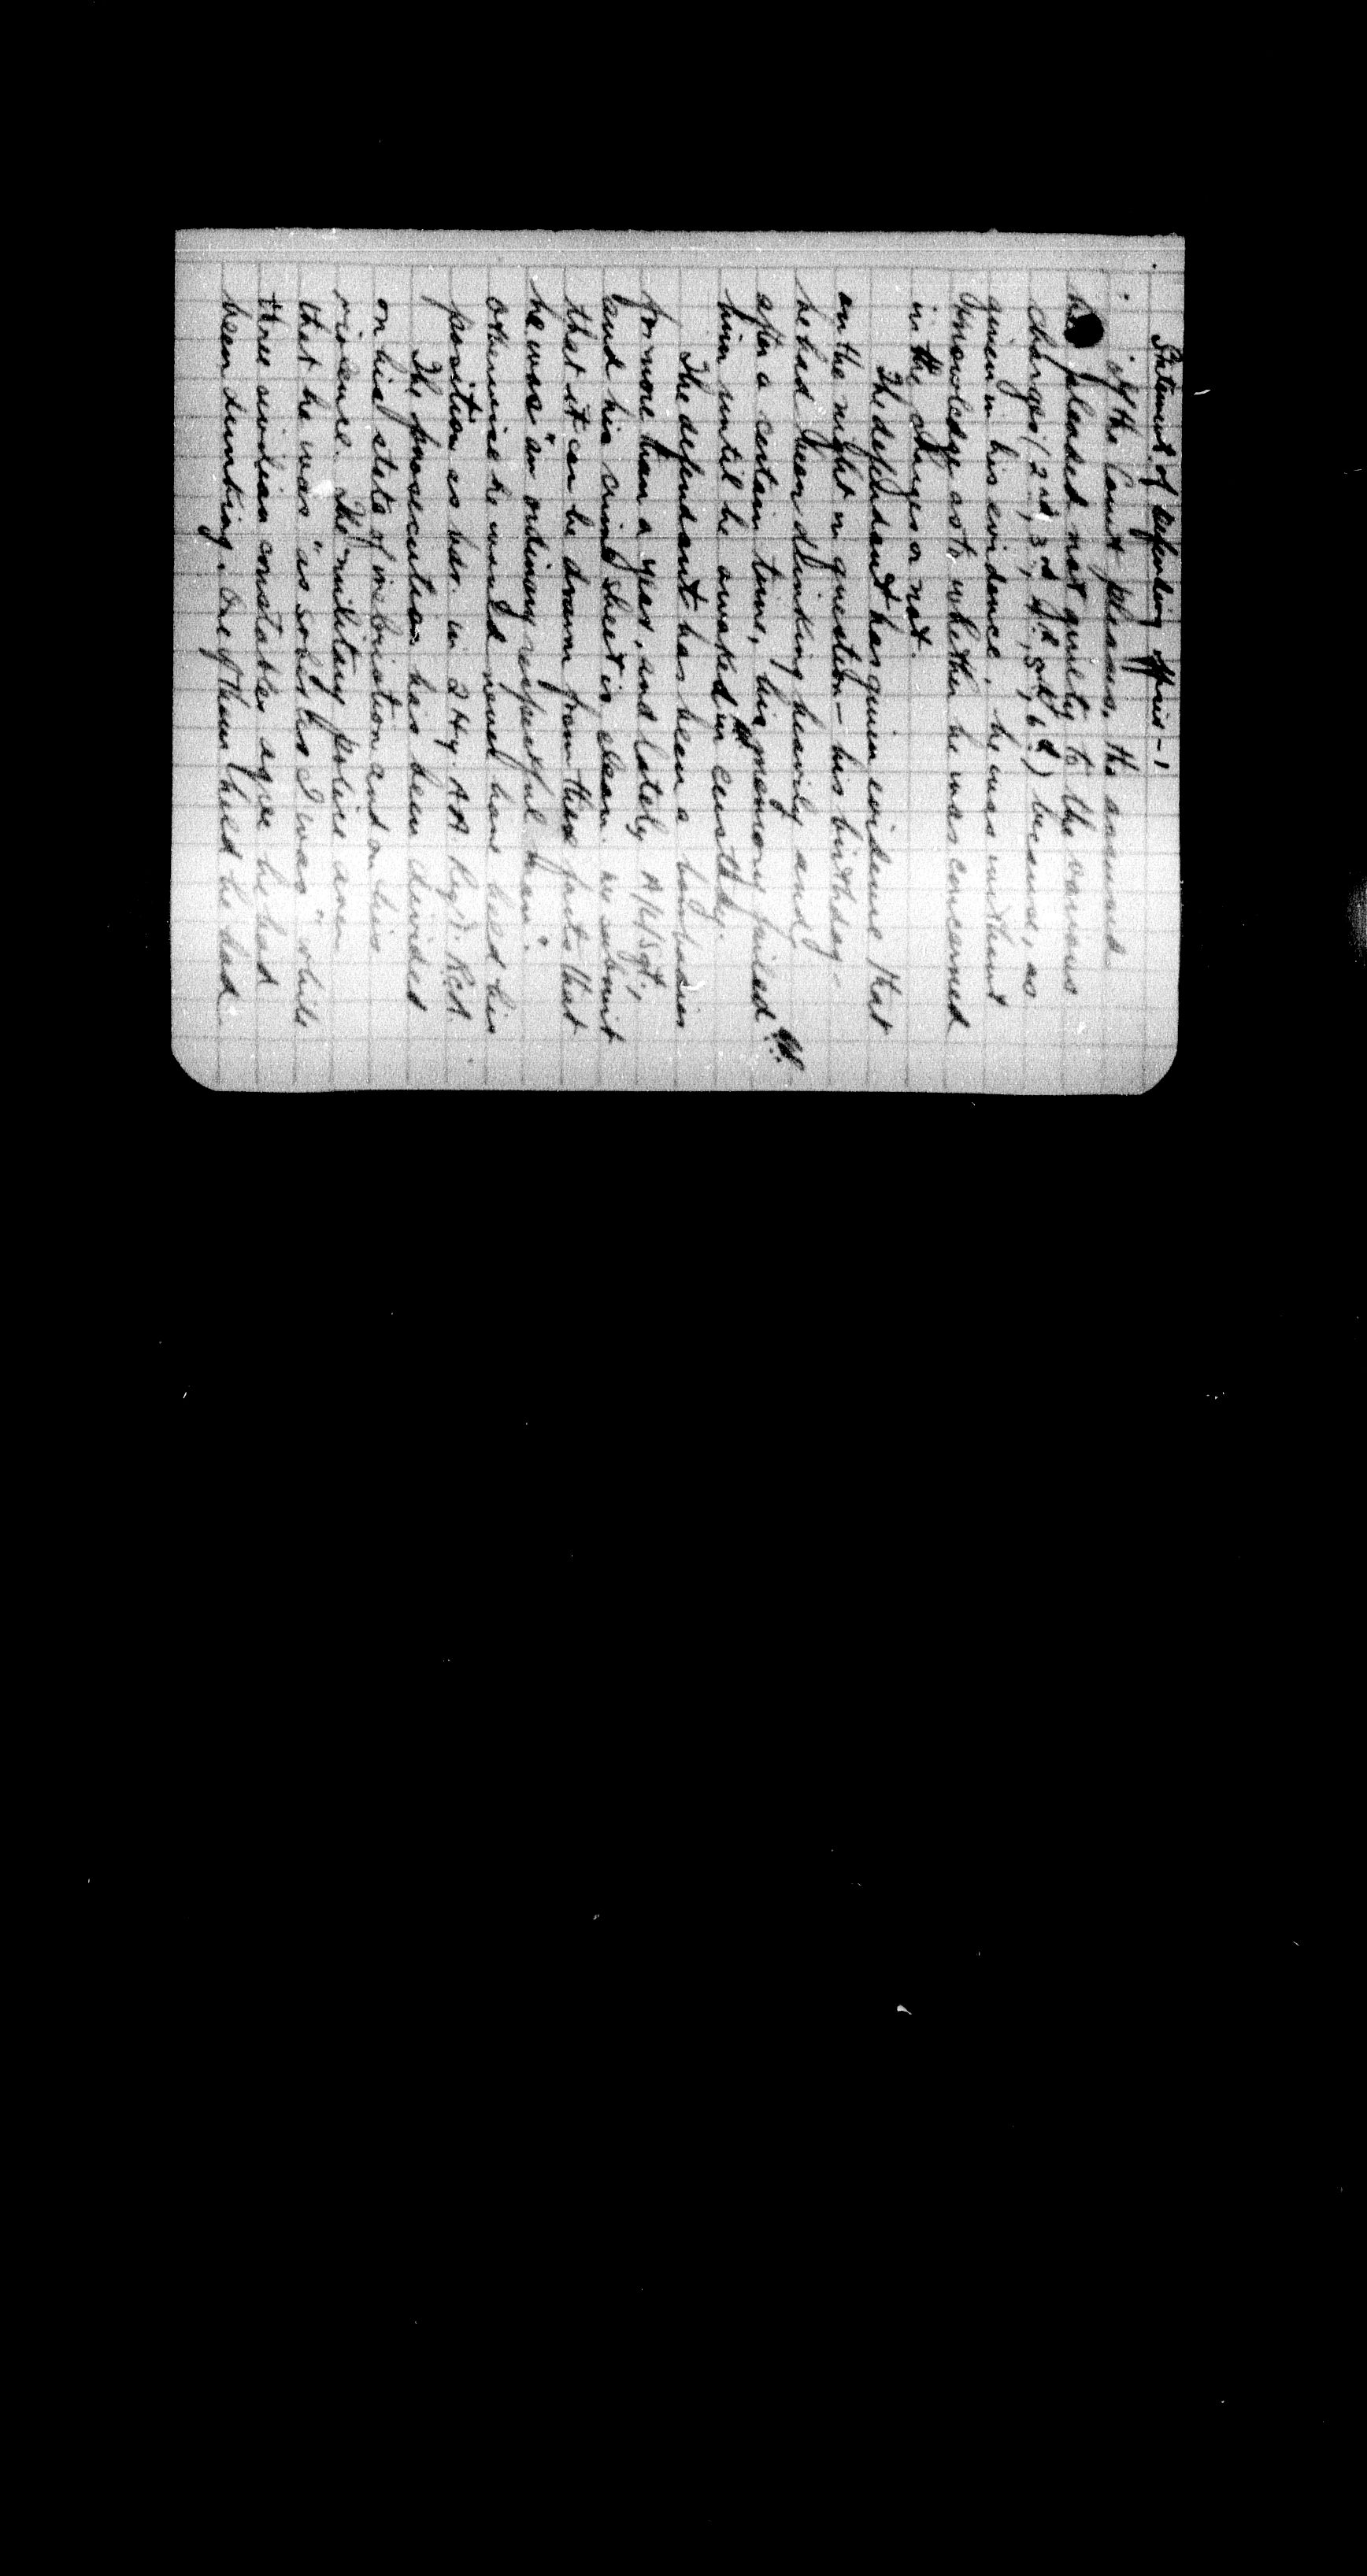 Statement of defending offr's - 1
If the Court pleases, the accused
has pleaded not guilty to the various
charges (2nd, 3rd, 4th, 5th, 6th) because, as
given in his evidence, he was without
knowledge as to whether he was concerned
in the charges or not.
The defendant has given evidence that
on the night in question – his birthday –
he had been drinking heavily and,
after a certain time, his memory failed
him until he awaked in custody.
The defendant has been a bombadier
for more than a year, and lately A/L/Sgt,
and his crime sheet is clean. We submit
that it can be drawn from these facts that
he was "an ordinary respectful man".
Otherwise he would never have held his
position as bdr. in 2 Hy. AA Regt. RCA
The prosecution has been divided
on his state of inebriation and on his
violence. The military police aver
that he was "as sober as I was" while
three civilian constables agree he had
been drinking. One of them held he had